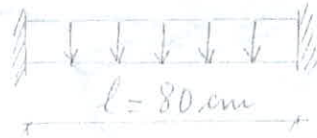 l = 80 cm